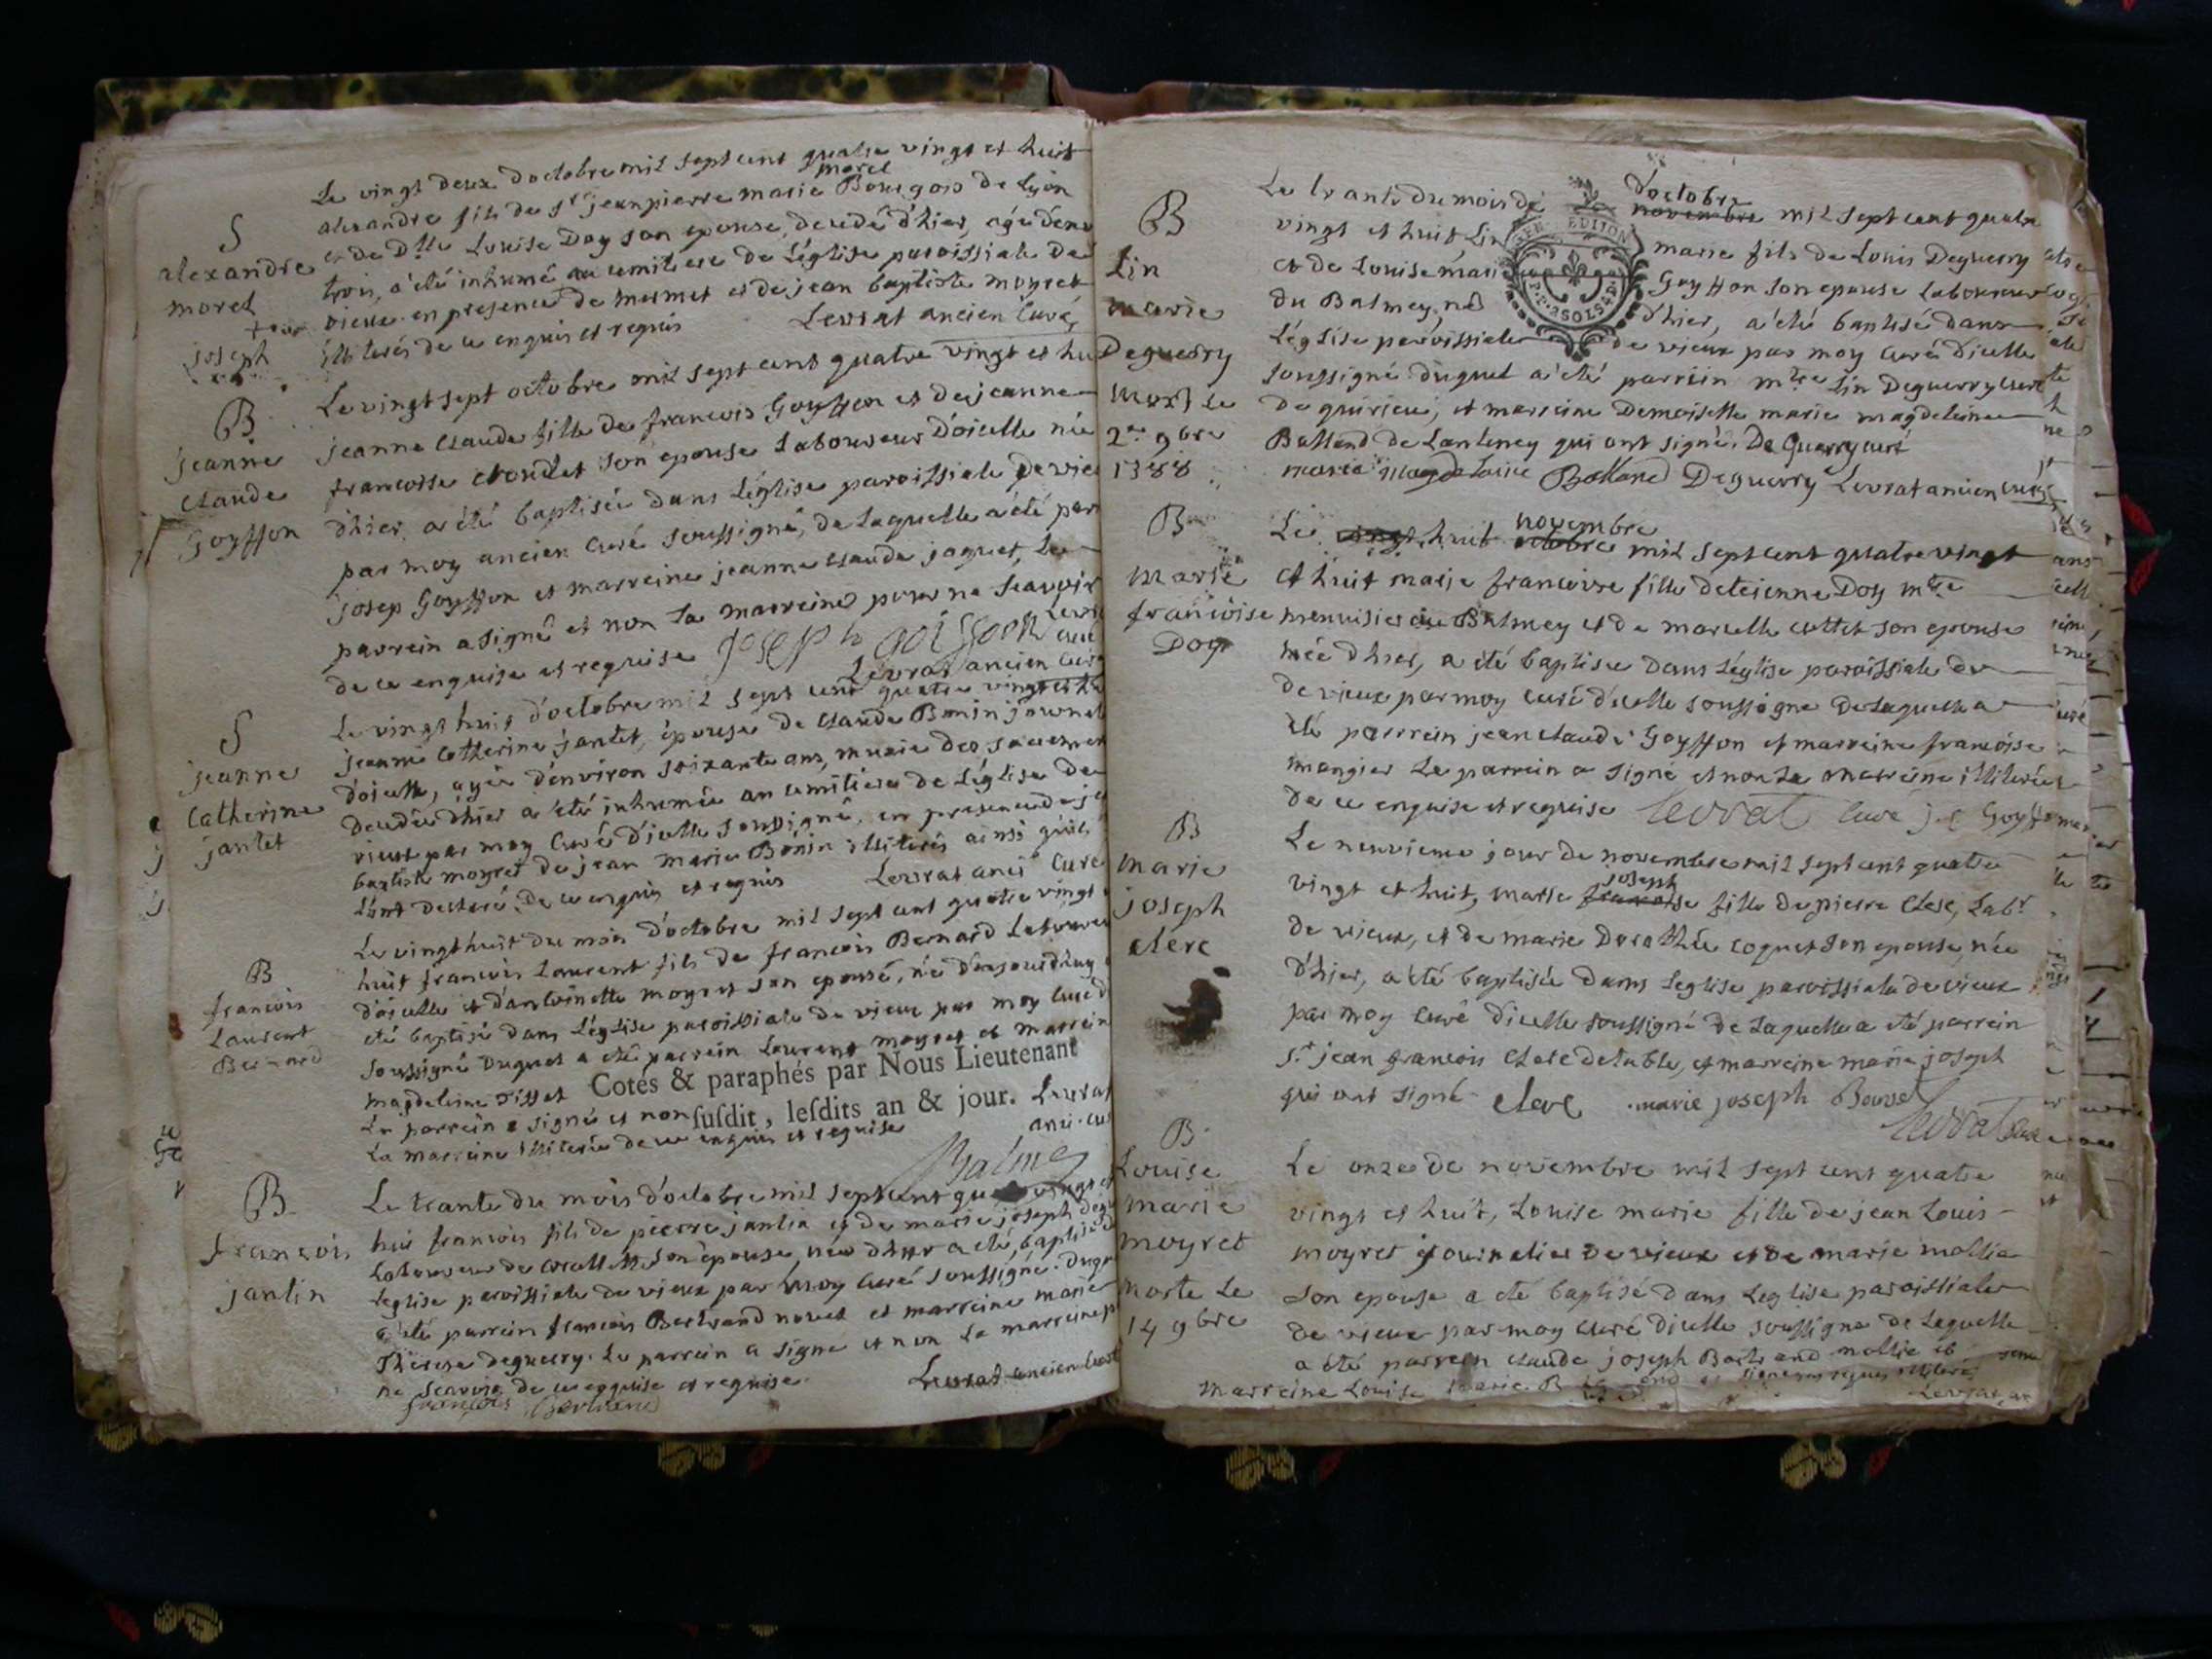 S
alexandre
morel
joseph
Le vingt deux doctobre mil sept cent quatre vingt et huit
morel
alexandre fils de sr jean pierre marie Bourgois de Lyon
et de Dlle Louise Doy son epouse, decedé d'hier, agé d'env
trois, a été inhumé au cemitiere de L'église paroissiale de
vieux en presence de mermet et de jean baptiste moyret
illiterés de ce enquis et requis Levrat ancien Curé
B
jeanne
Claude
Goyffon
Le vingt sept octobre mil sept cent quatre vingt et hu
jeanne Claude fille de francois Goyffon et de jeanne
francoise son epouse Laboureur D'oicelle née
d'hier, a été baptisée dans L'église paroissiale de vieu
par moy ancien Curé soussigné, de Laquelle a été par
josep Goyffon et marreine jeanne Claude jaquet, Le
parrein a signé et non La marreine pour ne scavoir
de ce enquise et requise joseph goiffon Levrat
curé
Levrat ancien Curé
S
jeanne
Catherine
jantet
Le vingt huit d'octobre mil sept cent quatre vingt et hu
jeanne Catherine jantet, épouse de Claude Bonin journal
d'oicelle, agée d'environ soixante ans, munie des sacremen
decedée d'hier a été inhumée au cemitiere de L'église de
vieux par moy Curé d'icelle soussigné, en presence de je
baptiste moyret de jean marie Bonin illiterés ainsi quil
L'ont declaré de ce enquis et requis Levrat anci Curé
B
francois
Laurent
Bernard
Le vingt huit du mois d'octobre mil sept cent quatre vingt
huit francois Laurent fils de francois Bernard Laboureu
d'oicelle et d'antoinette moyret son epouse, né d'aujourd'huy
été baptisé dans L'église paroissiale de vieux par moy Curé d
soussigné Duquel a été parrein Laurent moyret et marrein
magdeleine Tisset Cotés & paraphés par Nous Lieutenant
Le parrein a signé et non susdit, lesdits an & jour. Levrat
La marreine illiterée de ce enquise et requise anci. cu
Balme
B
francois
jantin
Le trante du mois d'octobre mil sept cent quatre vingt et
huit francois fils de pierre jantin et de marie joseph
Laboureur de son epouse, née d'hier a été baptisé d
L'eglise paroissiale de vieux par moy Curé soussigné. Duqu
a été parrein francois Bertrand et marreine marie
Therese deguerry. Le parrein a signé et non la marreine p
ne scavoir de ce enquise et requise Levrat ancien Curé
francois Bertrand
B
Lin
marie
Deguerry
mort Le
2e 9bre
1788
d'octobre
Le trante du mois de novembre mil sept cent quatre
vingt et huit Lin marie fils de Louis Deguerry
et de Louise marie Goyffon son epouse Laboureur
du Balmey né d'hier, a été baptisé dans
L'église paroissiale de vieux par moy Curé d'icelle
soussigné duquel a été parrein mtre Lin Deguerry Curé
de quirieu, et marreine Demoiselle marie magdeleine
Balland de Lanteney qui ont signé. De Guerry curé
marie magdelaine Balland Deguerry Levrat ancien curé
B
marie
francoise
Doy
novembre
Le vingt huit octobre mil sept cent quatre vingt
et huit marie francoise fille deteienne Doy mtre
menuisier au Balmey et de marcelle cottet son epouse
née d'hier, a été baptisée dans L'église paroissiale de
de vieux par moy curé d'icelle soussigné De Laquelle a
été parrein jean Claude Goyffon et marreine francoise
mangier Le parrein a signé et non La marreine illiterée
de ce enquise et requise Levrat Curé j. c Goyffon
B
marie
joseph
clerc
Le neuvieme jour de novembre mil sept cent quatre
joseph
vingt et huit, marie francoise fille de pierre Clerc, Labr
de vieux, et de marie Dorothée coquet son epouse, née
d'hier, a été baptisée dans Leglise paroissiale de vieux
par moy curé d'icelle soussigné de Laquelle a été parrein
sr jean francois Clerc detable, et marreine marie joseph
qui ont signé clerc marie joseph Bavet
Levrat Curé
B
Louise
marie
moyret
morte Le
14 9bre
Le onze de novembre mil sept cent quatre
vingt et huit, Louise marie fille de jean Louis
moyret journalier de vieux et de marie mollie
son epouse a été baptisé dans Leglise paroissiale
de vieux par moy curé d'icelle soussigné de Laquelle
a été parrein Claude joseph Bertrand mollie et
marreine Louise marie
Levrat